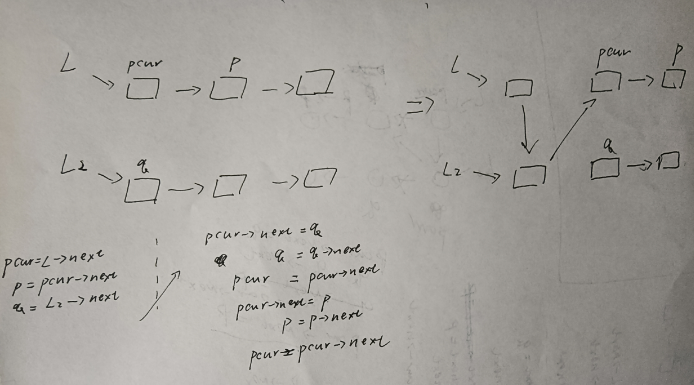 L pcur p
L2 q
⇒
L pcur p
L2 q
pcur=L->next
p=pcur->next
q=L2->next
pcur->next=q
q=q->next
pcur=pcur->next
pcur->next=p
p=p->next
pcur=pcur->next